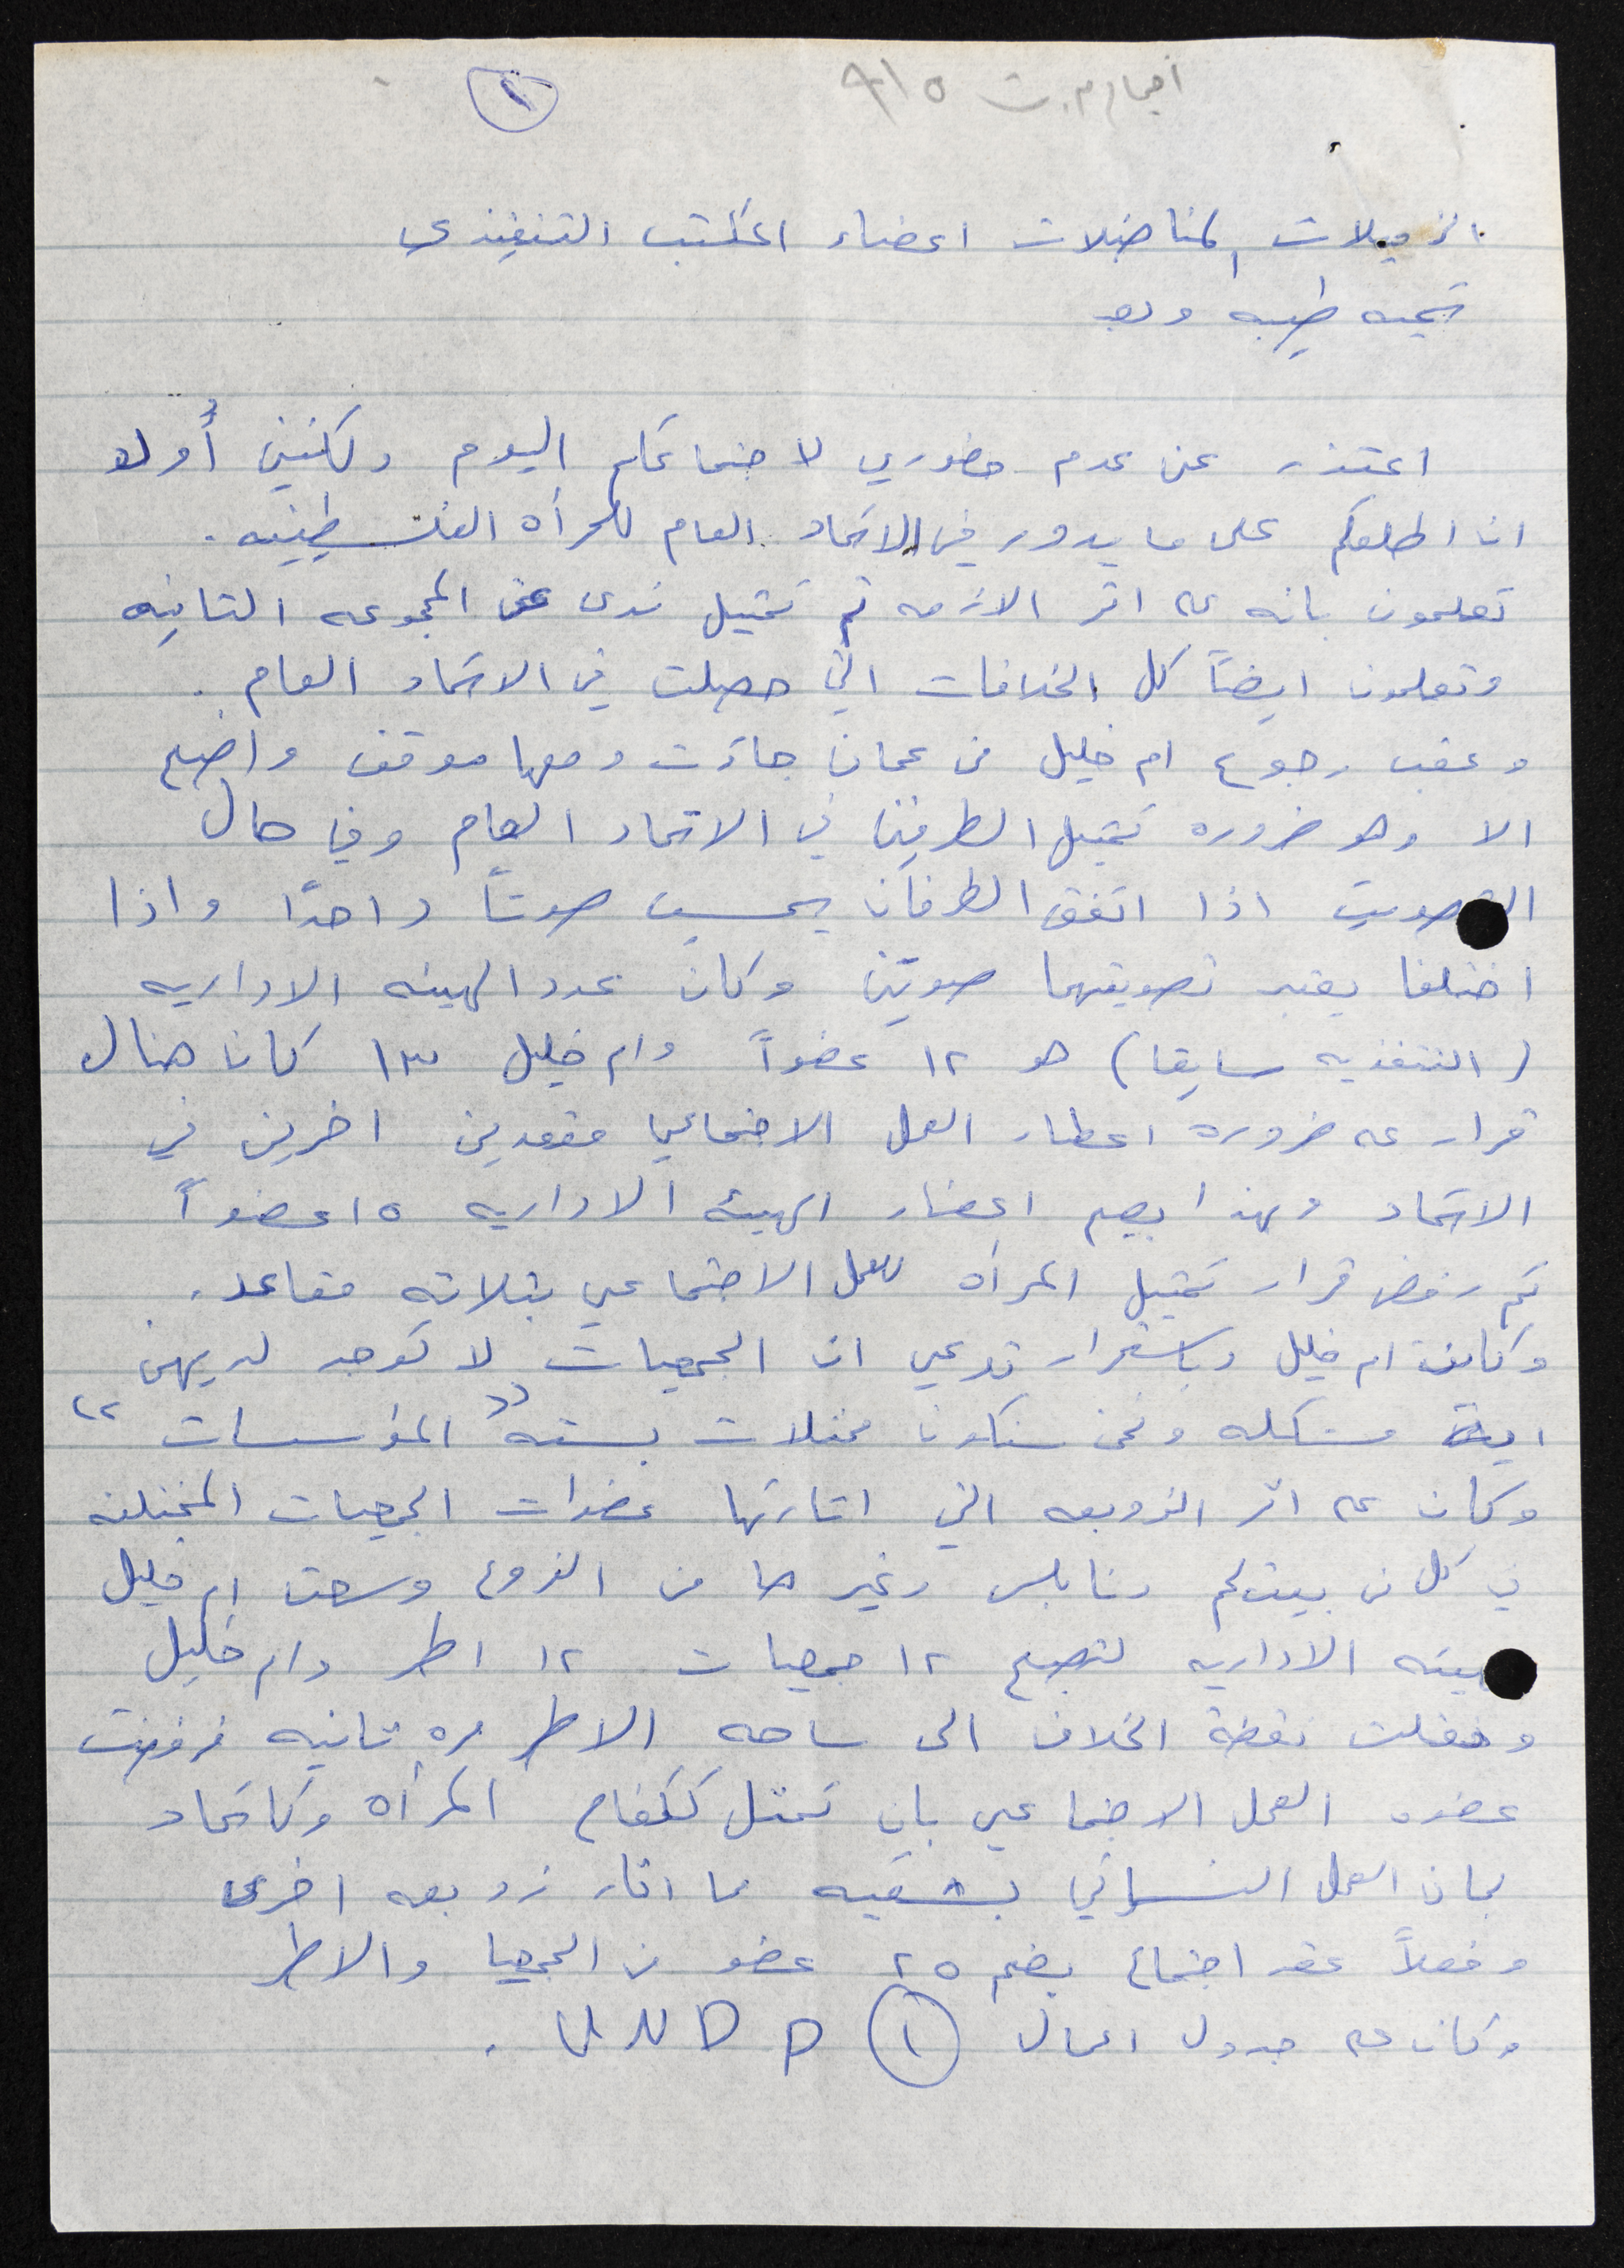 اجتماع م.ت ٩١٥
١
الزميلات المناضلات اعضاء المكتب التنفيذي
تحيه طيبه وبعد
اعتذر عن عدم حضوري لاجتماعكم اليوم ولكنني أود
ان اطلعكم على ما يدور في الاتحاد العام للمرأه الفلسطينيه.
تعلمون بانه على اثر الازمه تم تمثيل ندى عن المجموعه الثانيه
وتعلمون ايضاً كل الخلافات التي حصلت في الاتحاد العام.
وعقب رجوع ام خليل من عمان جاءت ومعها موقف واضح
الا وهو ضروره تمثيل الطرفين في الاتحاد العام وفي حال
التصويت اذا اتفق الطرفان يحسب صوتاً واحداً واذا
اختلفا يعتبر تصويتهما صوتين وكان عدد الهيئه الاداريه
(التنفذيه سابقا) هو ١٢ عضواً وام خليل ١٣ كان هناك
قرار على ضروره اعطاء العمل الاجتماعي مقعدين اخرين في
الاتحاد وبهذا يصبح اعضاء الهيئه الاداريه ١٥ عضواً
تم رفض قرار تمثيل المرأه للعمل الاجتماعي بثلاثه مقاعد.
وكانت ام خليل وباستمرار تدعي ان الجمعيات لا توجد لديهن
اية مشكله ونحن سنكون ممثلات بسته "المؤسسات"
وكان على اثر الزوبعه التي اثارتها عضوات الجمعيات المختلفه
في كل من بيت لحم ونابلس وغيرها من الفروع وسعت ام خليل
الهيئه الاداريه لتصبح ١٢ جمعيات ١٢ اطر وام خليل
ونقلت نقطة الخلاف الى ساحه الاطر مره ثانيه فرفضت
عضوه العمل الاجتماعي بان تمثل ككفاح المرأه وكاتحاد
لجان العمل النسائي بشقيه مما اثار زوبعه اخرى
وفعلاً عقد اجتماع يضم ٢٥ عضو من الجمعيا والاطر
وكان على جدول اعمال ١ UNDP.